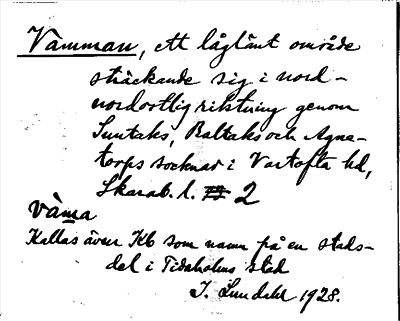 Vämman, ett låglänt område
sträckande sig i nord-
nordostlig riktning genom
Suntaks, Baltaks och Agne-
torps socknar i Vartofta hd,
Skarab. l. 2
Väma
Kallas även Kb som namn på en stads-
del i Tidaholms stad
J. Lundahl 1928.